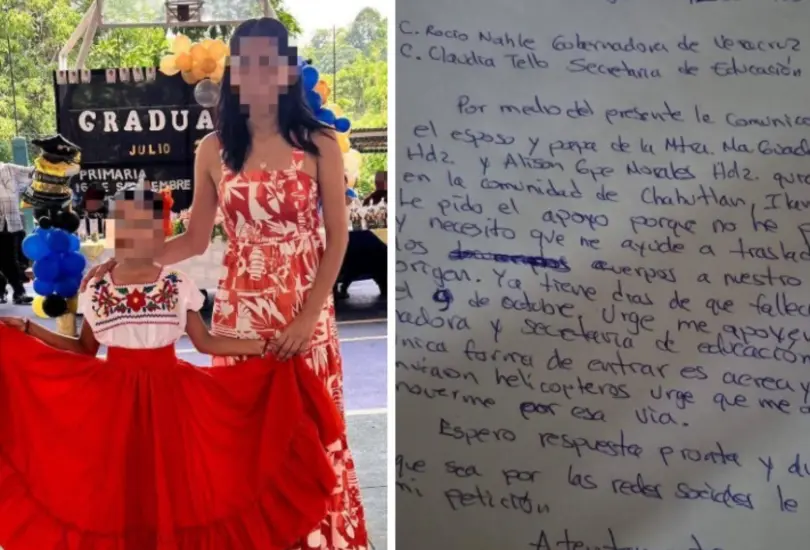 GRADUA
JULIO
PRIMARIA
16 DE SEPTIEMBRE
C. Rocio Nahle Gobernadora de Veracruz
C. Claudia Tello Secretaria de Educación
Por medio del presente le comunico
el esposo y papa de la Mtra. Ma Guada
Hdz. y Alison Gpe Morales Hdz. que
en la comunidad de Chahutlan, I
le pido el apoyo porque no he
y necesito que me ayude a traslad
los cuerpos a nuestro
origen. Ya tiene dias de que fallec
el 9 de octubre. Urge me apoye
nadora y secretaria de educación
nica forma de entrar es aerea y
nviaron helicopteros urge que me
moverme por esa via.
Espero respuesta pronta y d
que sea por las redes sociales le
mi petición
Atentamente